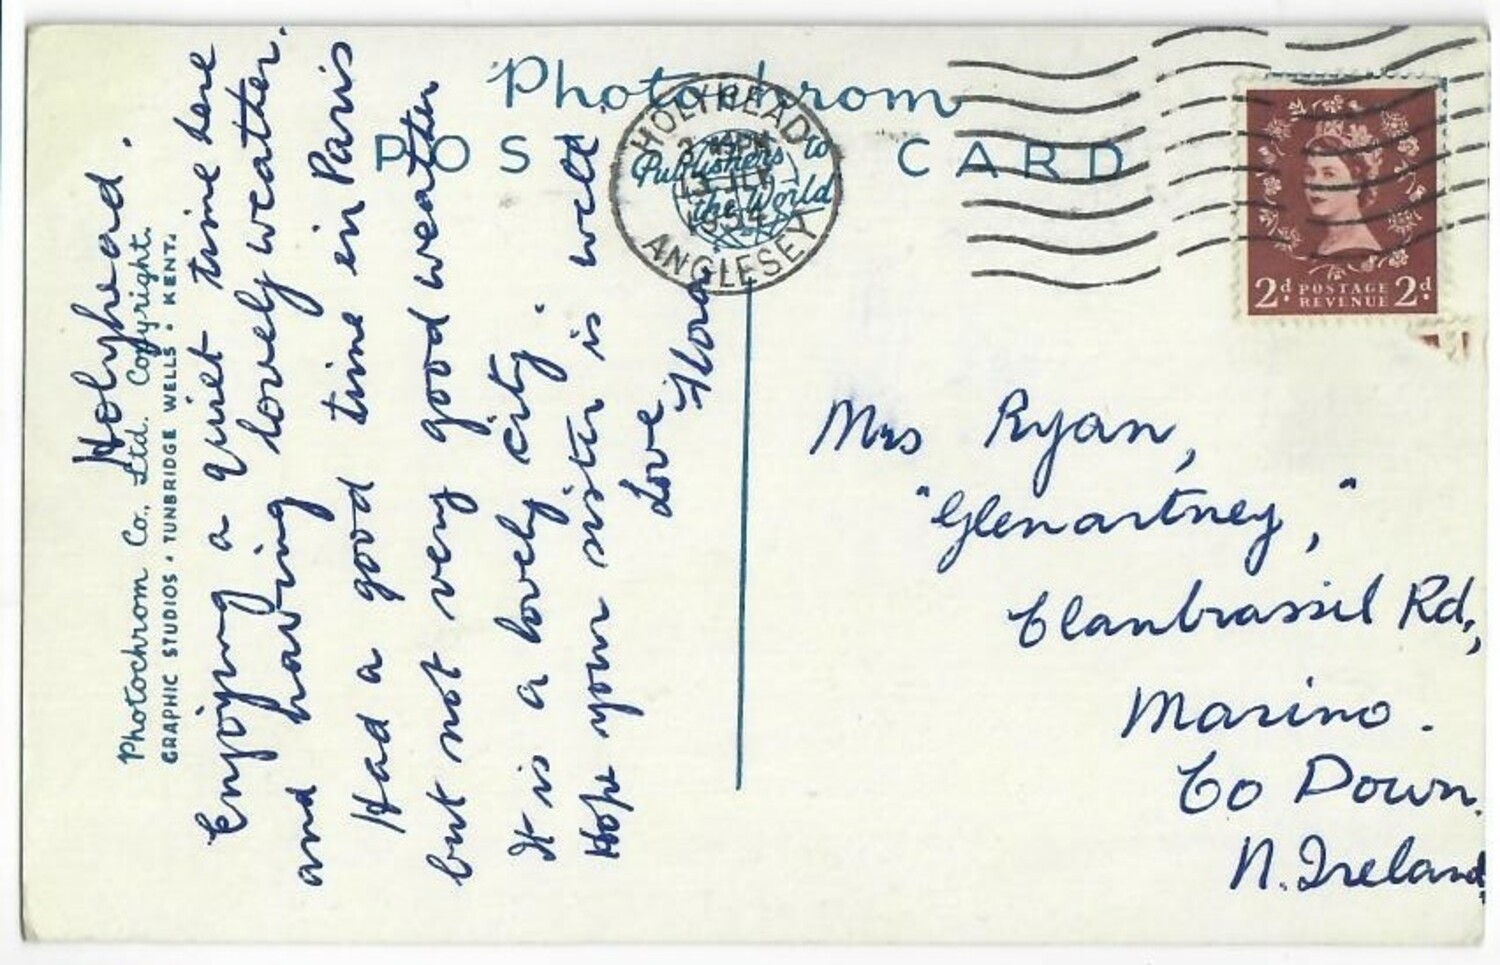 Photochrom
POST CARD
Publishers to
the World
HOLYHEAD
ANGLESEY
2.45PM
13 JLY
195
2d POSTAGE REVENUE 2d
Photochrom Co., Ltd. Copyright.
GRAPHIC STUDIOS • TUNBRIDGE WELLS • KENT.
Holyhead.
Enjoying a quiet time here
and having lovely weather.
Had a good time in Paris
but not very good weather
It is a lovely city.
Hope your sister is well
Love
Flora
Mrs Ryan,
"Glenartney,"
Clanbrassil Rd.,
Marino.
Co Down.
N. Ireland.